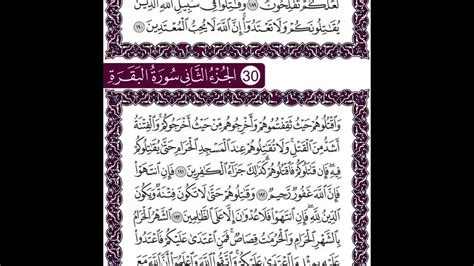 لَعَلَّكُمْ تُفْلِحُونَ ﴿١٨٩﴾ وَقَٰتِلُوا۟ فِى سَبِيلِ ٱللَّهِ ٱلَّذِينَ
يُقَٰتِلُونَكُمْ وَلَا تَعْتَدُوٓا۟ إِنَّ ٱللَّهَ لَا يُحِبُّ ٱلْمُعْتَدِينَ ﴿١٩٠﴾
30 الجُزءُ الثَّانِي سُورَةُ البَقَرَةِ
وَٱقْتُلُوهُمْ حَيْثُ ثَقِفْتُمُوهُمْ وَأَخْرِجُوهُم مِّنْ حَيْثُ أَخْرَجُوكُمْ وَٱلْفِتْنَةُ
أَشَدُّ مِنَ ٱلْقَتْلِ وَلَا تُقَٰتِلُوهُمْ عِندَ ٱلْمَسْجِدِ ٱلْحَرَامِ حَتَّىٰ يُقَٰتِلُوكُمْ
فِيهِ فَإِن قَٰتَلُوكُمْ فَٱقْتُلُوهُمْ كَذَٰلِكَ جَزَآءُ ٱلْكَٰفِرِينَ ﴿١٩١﴾ فَإِنِ ٱنتَهَوْا۟
فَإِنَّ ٱللَّهَ غَفُورٌ رَّحِيمٌ ﴿١٩٢﴾ وَقَٰتِلُوهُمْ حَتَّىٰ لَا تَكُونَ فِتْنَةٌ وَيَكُونَ
ٱلدِّينُ لِلَّهِ فَإِنِ ٱنتَهَوْا۟ فَلَا عُدْوَٰنَ إِلَّا عَلَى ٱلظَّٰلِمِينَ ﴿١٩٣﴾ ٱلشَّهْرُ ٱلْحَرَامُ
بِٱلشَّهْرِ ٱلْحَرَامِ وَٱلْحُرُمَٰتُ قِصَاصٌ فَمَنِ ٱعْتَدَىٰ عَلَيْكُمْ فَٱعْتَدُوا۟
عَلَيْهِ بِمِثْلِ مَا ٱعْتَدَىٰ عَلَيْكُمْ وَٱتَّقُوا۟ ٱللَّهَ وَٱعْلَمُوٓا۟ أَنَّ ٱللَّهَ مَعَ